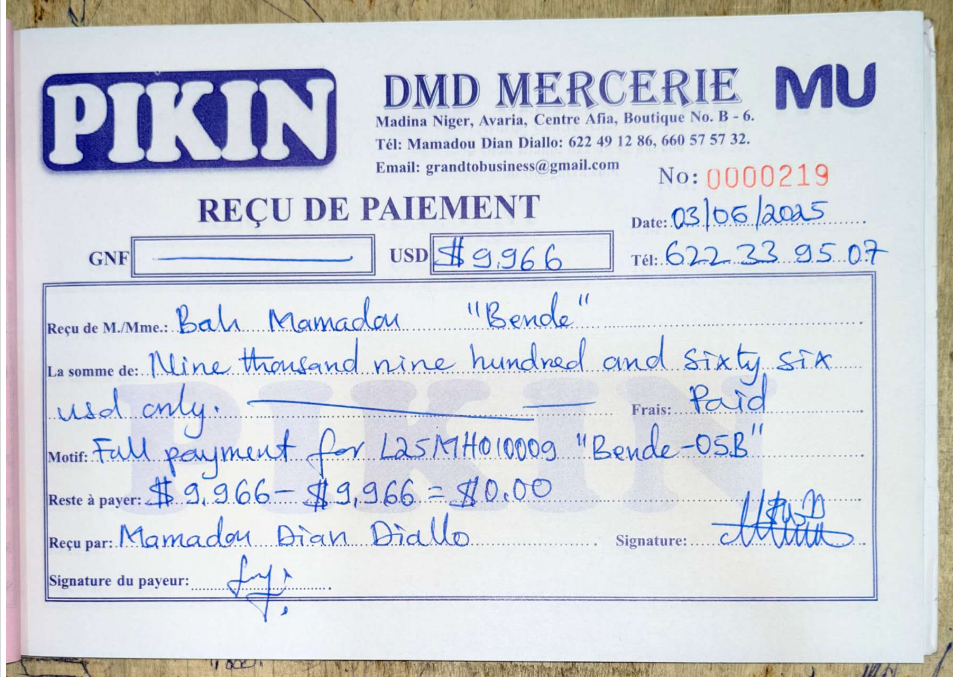 PIKIN
DMD MERCERIE MU
Madina Niger, Avaria, Centre Afia, Boutique No. B - 6.
Tél: Mamadou Dian Diallo: 622 49 12 86, 660 57 57 32.
Email: grandtobusiness@gmail.com
No: 0000219
REÇU DE PAIEMENT
Date: 03/06/2025
GNF USD $9,966 Tél: 622 33 95 07
Reçu de M./Mme.: Bah Mamadou "Bende"
La somme de: Nine thousand nine hundred and sixty six
usd only. Frais: Paid
PIKIN
Motif: Full payment for L25MH010009 "Bende-05B"
Reste à payer: $9,966 - $9,966 = $0.00
Reçu par: Mamadou Dian Diallo Signature:
Signature du payeur: